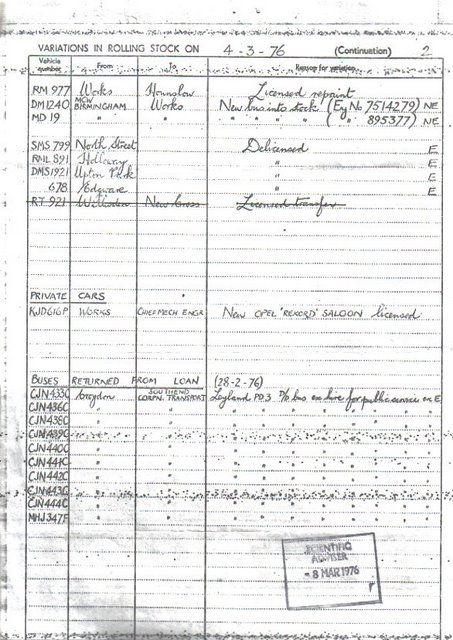 VARIATIONS IN ROLLING STOCK ON 4-3-76 (Continuation) 2
Vehicle number From To Reason for variation
RM 977 Works Hounslow Licensed repaint
DM1240 MCW BIRMINGHAM Works New bus into stock (Eng No 7514279) NE
MD 19 " " " " " ( " 895377) NE
SMS 799 North Street Delicensed E
RML 891 Holloway " E
DMS1921 Upton Park " E
678 Edgware " E
RT 921 Willesden New Cross Licensed transfer
PRIVATE CARS
KJD616P WORKS CHIEF MECH ENGR New OPEL 'REKORD' SALOON licensed
BUSES RETURNED FROM LOAN (28-2-76)
CJN433C Croydon SOUTHEND CORPN. TRANSPORT Leyland PD3 bus on hire for public service on E
CJN436C " " " " " " " " " "
CJN438C " " " " " " " " " "
CJN439C " " " " " " " " " "
CJN440C " " " " " " " " " "
CJN441C " " " " " " " " " "
CJN442C " " " " " " " " " "
CJN443C " " " " " " " " " "
CJN444C " " " " " " " " " "
MHJ347F " " " " " " " " " "
SCIENTIFIC
ADVISER
- 8 MAR 1976